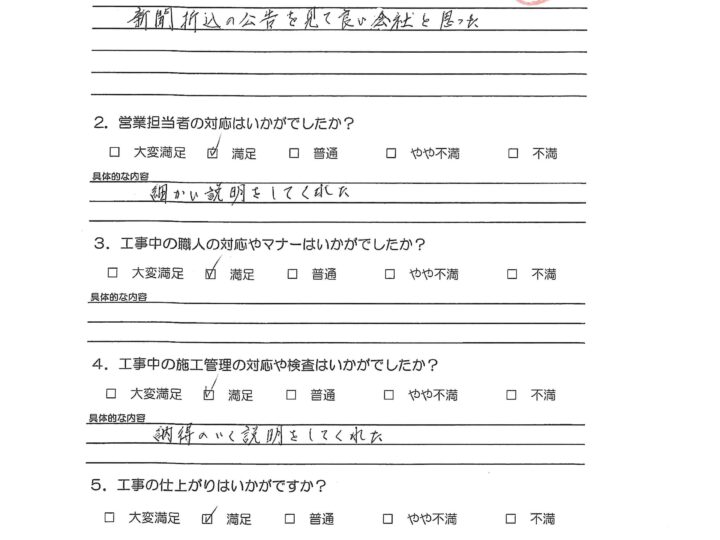 新聞折込の公告を見て良い会社と思った
2. 営業担当者の対応はいかがでしたか?
□ 大変満足 ☑ 満足 □ 普通 □ やや不満 □ 不満
具体的な内容
細かい説明をしてくれた
3. 工事中の職人の対応やマナーはいかがでしたか?
□ 大変満足 ☑ 満足 □ 普通 □ やや不満 □ 不満
具体的な内容
4. 工事中の施工管理の対応や検査はいかがでしたか?
□ 大変満足 ☑ 満足 □ 普通 □ やや不満 □ 不満
具体的な内容
納得のいく説明をしてくれた
5. 工事の仕上がりはいかがですか?
□ 大変満足 ☑ 満足 □ 普通 □ やや不満 □ 不満